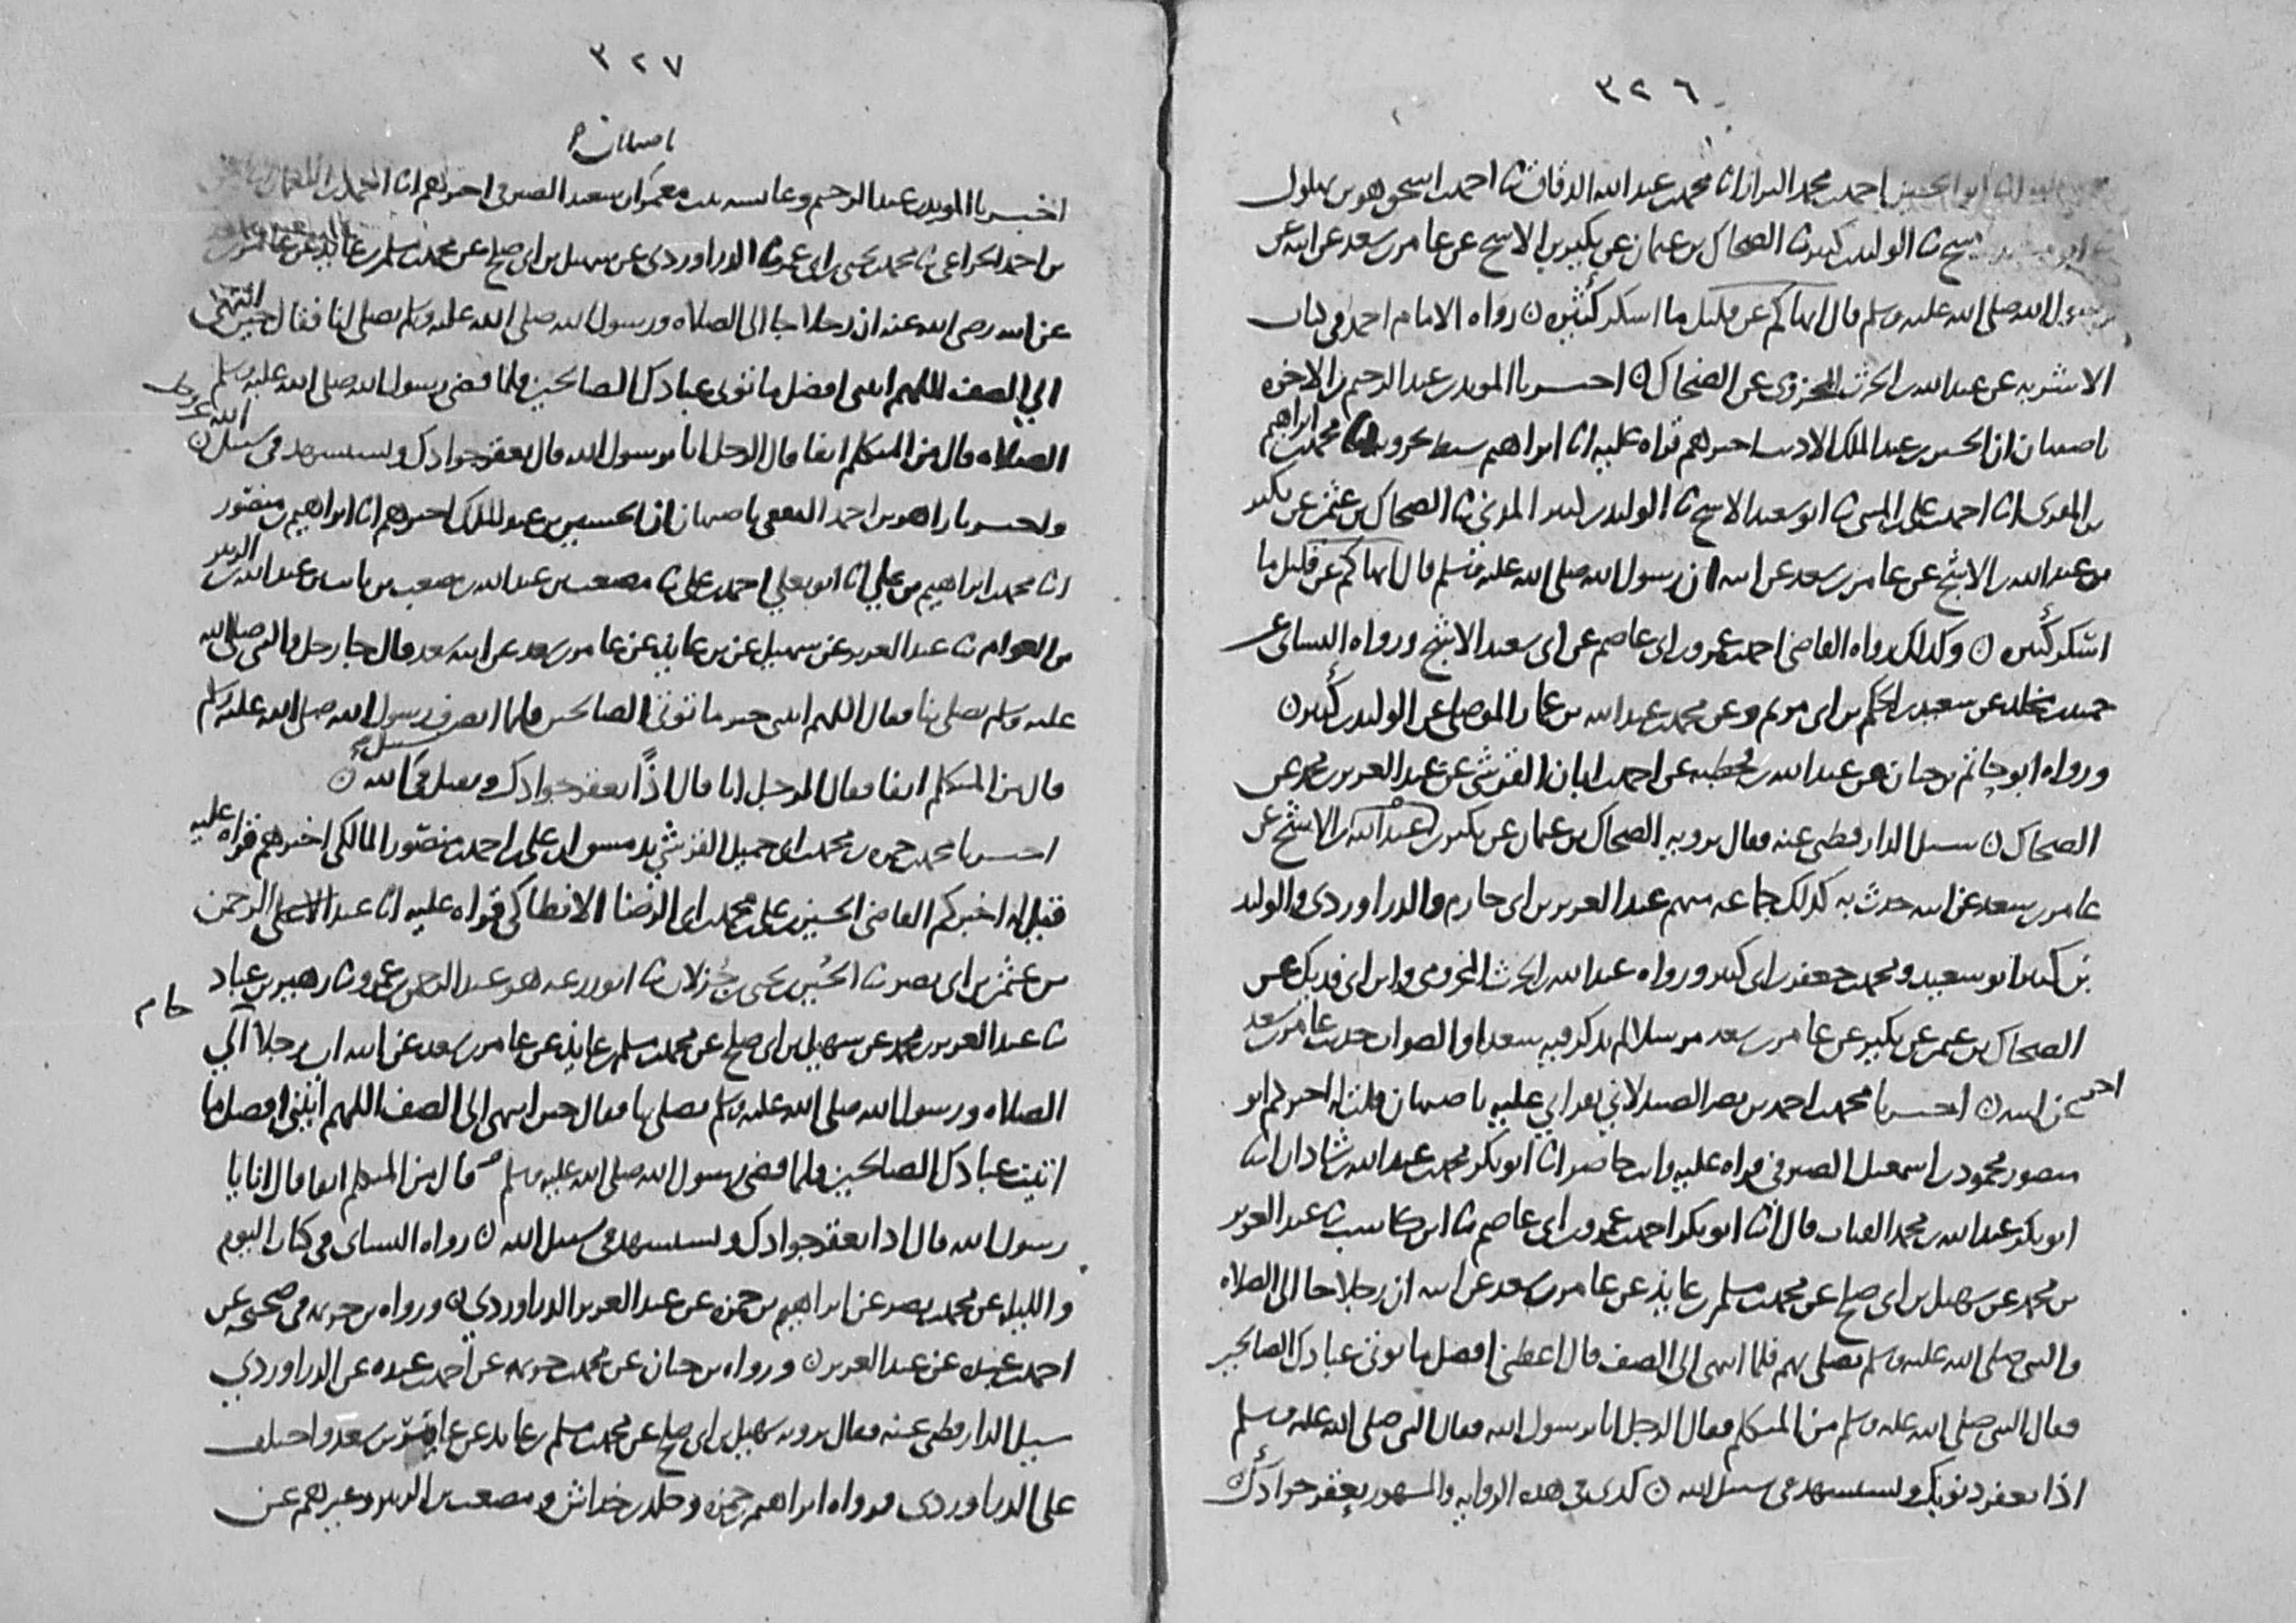 ٣٢٦
ابو الحسين احمد بن محمد البزاز انا محمد بن عبد الله الدقاق ثنا احمد بن اسحق هو بن بهلول
ثنا الوليد بن كثير ثنا الضحاك بن عثمان عن بكير بن الاشج عن عامر بن سعد عن ابيه عن
رسول الله صلى الله عليه وسلم قال انهاكم عن قليل ما اسكر كثيره ن رواه الامام احمد في كتاب
الاشربه عن عبد الله بن الحرث المخزومي عن الضحاك ن اخبرنا المويد بن عبد الرحيم بن الاخوه
باصبهان ان الحسين بن عبد الملك الاديب اخبرهم قراه عليه انا ابراهيم سبط بحرويه انا محمد بن ابراهيم
بن المقرئ انا احمد بن علي بن المثنى ثنا ابو سعيد الاشج ثنا الوليد بن كثير المدني ثنا الضحاك بن عثمن عن بكير
بن عبد الله بن الاشج عن عامر بن سعد عن ابيه ان رسول الله صلى الله عليه وسلم قال انهاكم عن قليل ما
اسكر كثيره ن وكذلك رواه القاضي احمد بن عمرو بن ابي عاصم عن ابي سعيد الاشج ورواه النسائي عن
حميد بن مخلد عن سعيد بن الحكم بن ابي مريم وعن محمد بن عبد الله بن عمار الموصلي عن الوليد بن كثير ن
ورواه ابو حاتم بن حبان عن عبد الله بن قحطبه عن احمد بن ابان القرشي عن عبد العزيز بن محمد عن
الضحاك ن سيل الدارقطني عنه فقال يرويه الضحاك بن عثمان عن بكير بن عبد الله بن الاشج عن
عامر بن سعد عن ابيه حدث به كذلك جماعه منهم عبد العزيز بن ابي حازم والدراوردي والوليد
بن كثير ابو سعيد ومحمد بن جعفر بن ابي كثير ورواه عبد الله بن الحرث المخزومي وابن ابي فديك عن
الضحاك بن عثمن عن بكير عن عامر بن سعد مرسلا لم يذكر فيه سعدا والصواب حديث عامر بن سعد
عن ابيه ن اخبرنا محمد بن احمد بن نصر الصيدلاني بقراتي عليه باصبهان قلت له اخبركم ابو
اخر
منصور محمود بن اسمعيل الصيرفي قراه عليه وانت حاضر انا ابو بكر محمد بن عبد الله بن شاذان انا
ابو بكر عبد الله بن محمد القباب قال انا ابو بكر احمد بن عمرو بن ابي عاصم ثنا ابن كاسب ثنا عبد العزيز
بن محمد عن سهيل بن ابي صلح عن محمد بن مسلم بن عايذ عن عامر بن سعد عن ابيه ان رجلا جا الى الصلاه
والنبي صلى الله عليه وسلم يصلي بهم فلما انتهى الى الصف قال اعطني افضل ما توتي عبادك الصالحين
فقال النبي صلى الله عليه وسلم من المتكلم فقال الرجل انا يرسول الله فقال النبي صلى الله عليه وسلم
اذا يعقر ذنوبك وتستشهد في سبيل الله ن كذى في هذه الروايه والمشهور يعقر جوادك
٣٢٧
باصبهان
اخبرنا المويد بن عبد الرحيم وعايشه بنت معمر ان سعيد الصيرفي اخبرهم انا احمد بن النعمان
بن احمد الخزاعي ثنا محمد بن يحيى بن ابي عمر ثنا الدراوردي عن سهيل بن ابي صلح عن محمد بن مسلم بن عايذ عن عامر بن سعد
عن ابيه رضي الله عنه ان رجلا جا الى الصلاه ورسول الله صلى الله عليه وسلم يصلي لنا فقال حين انتهى
الى الصف اللهم اتني افضل ما توتي عبادك الصالحين فلما قضى رسول الله صلى الله عليه وسلم
الصلاه قال من المتكلم انفا قال الرجل انا يرسول الله قال يعقر جوادك وتستشهد في سبيل الله عز وجل ن
واخبرنا زاهر بن احمد الثقفي باصبهان ان الحسين بن عبد الملك اخبرهم انا ابراهيم بن منصور
انا محمد بن ابراهيم بن علي انا ابو يعلى احمد بن علي ثنا مصعب بن عبد الله بن مصعب بن ثابت بن عبد الله بن الزبير
بن العوام ثنا عبد العزيز عن سهيل عن بن عايذ عن عامر بن سعد عن ابيه سعد قال جا رجل والنبي صلى الله
عليه وسلم يصلي بنا فقال اللهم اتني خير ما توتي الصالحين فلما انصرف رسول الله صلى الله عليه وسلم
قال من المتكلم انفا فقال الرجل انا قال اذًا يعقر جوادك وتقتل في سبيل الله ن
اخبرنا محمد بن حمزه بن محمد بن ابي جميل القرشي بدمشق ان علي بن احمد بن منصور المالكي اخبرهم قراه عليه
قيل له اخبركم القاضي الحسين بن علي بن محمد بن ابي الرضا الانطاكي قراه عليه انا عبد الرحمن
بن عثمن بن ابي نصر ثنا الحسن بن يحيى بن جزلان ثنا ابو زرعه هو عبد الرحمن بن عمرو ثنا زهير بن عباد
ثنا عبد العزيز بن محمد عن سهيل بن ابي صلح عن محمد بن مسلم بن عايذ عن عامر بن سعد عن ابيه ان رجلا اتى
الصلاه ورسول الله صلى الله عليه وسلم يصلي بنا فقال حين انتهى الى الصف اللهم اتني افضل ما
اتيت عبادك الصالحين فلما قضى رسول الله صلى الله عليه وسلم قال من المتكلم انفا قال انا يا
رسول الله قال اذا يعقر جوادك وتستشهد في سبيل الله ن رواه النسائي في كتاب اليوم
والليله عن محمد بن نصر عن ابراهيم بن حمزه عن عبد العزيز الدراوردي ن ورواه بن خزيمه في صحيحه عن
احمد بن عبده عن عبد العزيز ن ورواه بن حبان عن محمد بن خزيمه عن احمد بن عبده عن الدراوردي
سيل الدارقطني عنه فقال يرويه سهيل بن ابي صلح عن محمد بن مسلم بن عايذ عن عامر بن سعد واختلف
على الدراوردي فرواه ابراهيم بن حمزه وخلد بن خداش ومصعب بن الزبير وغيرهم عن